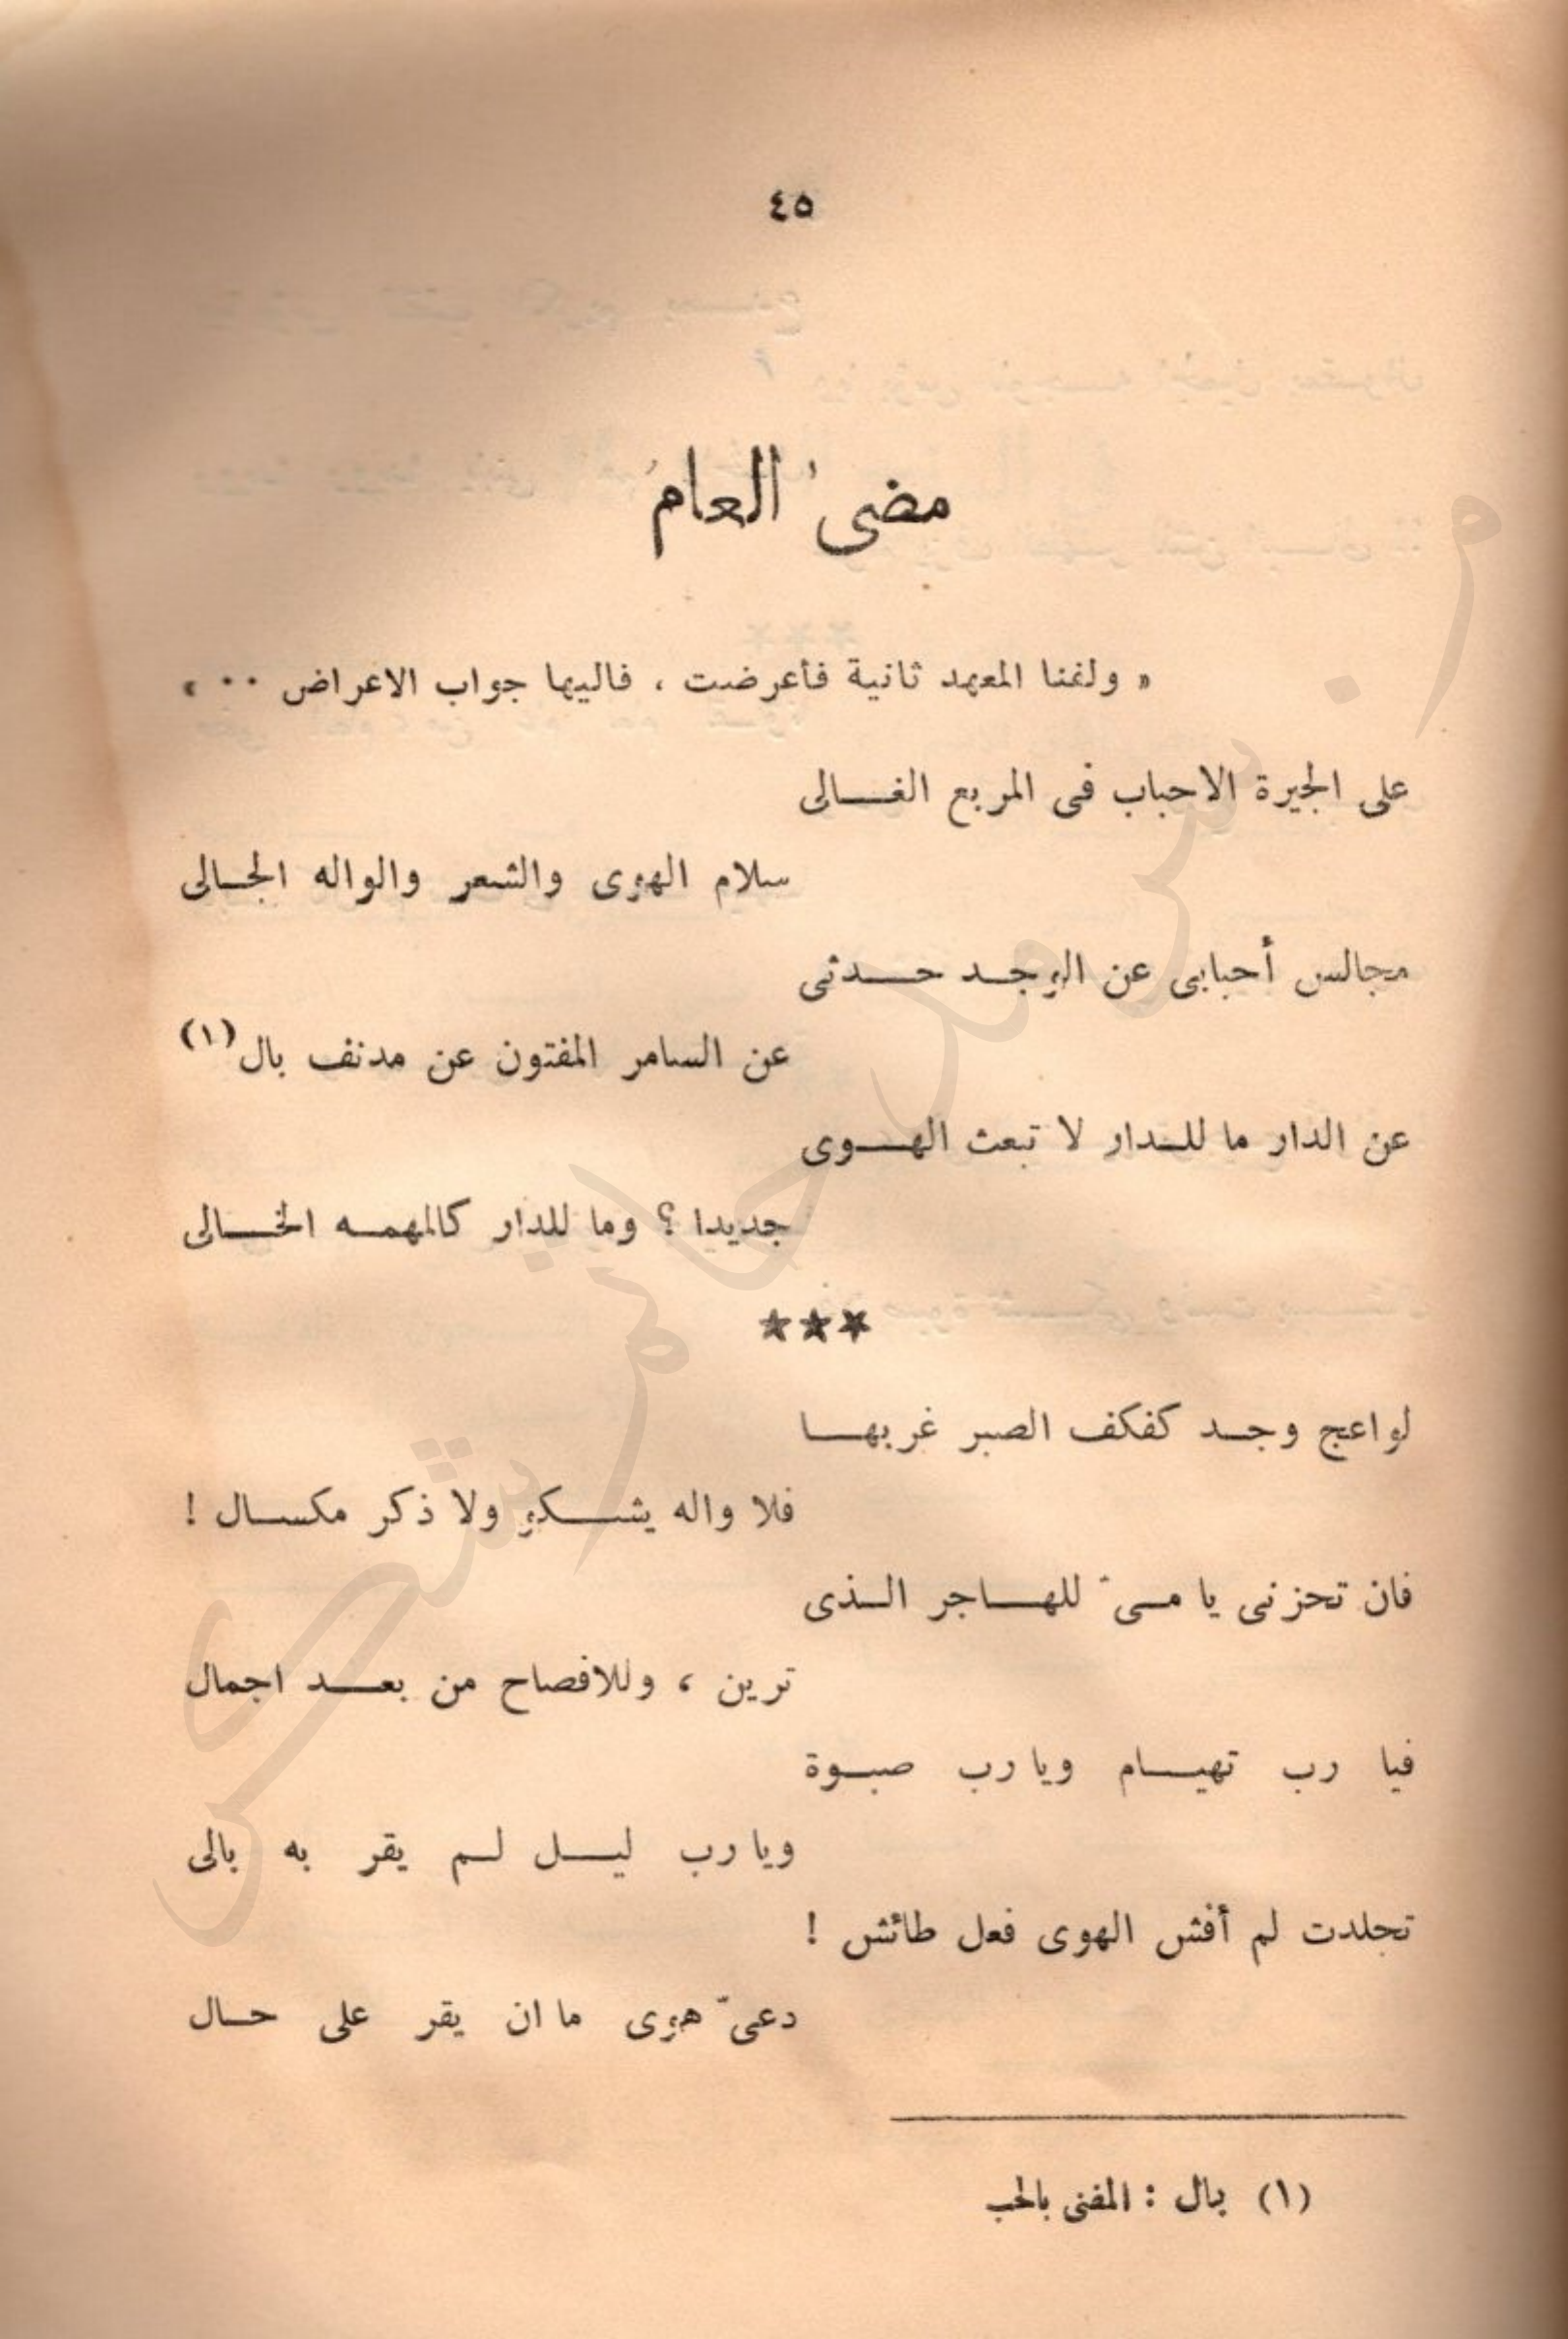 ٤٥
مضى العام
« ولفنا المعهد ثانية فأعرضت ، فاليها جواب الاعراض ٠٠ »
على الجيرة الاحباب فى المربع الغـالى
سلام الهوى والشعر والواله الجـالى
مجالس أحبابى عن الوجـد حـدثى
عن السامر المفتون عن مدنف بال (١)
عن الدار ما للـدار لا تبعث الهـوى
جديدا ؟ وما للدار كالمهمـه الخـالى
***
لواعج وجـد كفكف الصبر غربهـا
فلا واله يشـكو ولا ذكر مكسـال !
فان تحزنى يا مـىّ للهـاجر الـذى
ترين ، وللافصاح من بعـد اجمال
فيا رب تهيـام ويارب صبـوة
ويارب ليـل لـم يقر به بالى
تجلدت لم أفش الهوى فعل طائش !
دعىّ هوى ما ان يقر على حـال
(١) بال : المفنى بالحب